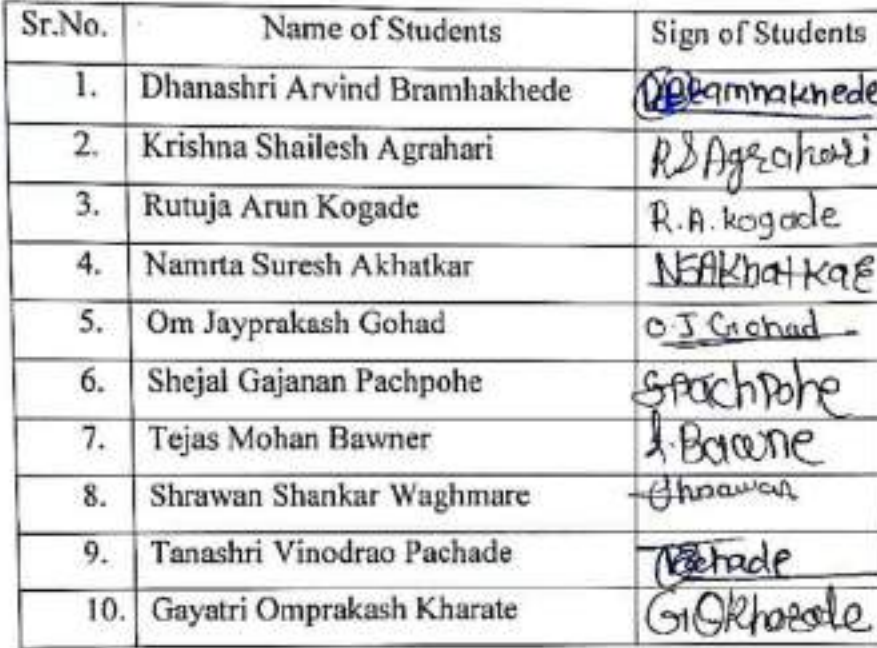 Sr.No. Name of Students Sign of Students
1. Dhanashri Arvind Bramhakhede
2. Krishna Shailesh Agrahari RSAgrahari
3. Rutuja Arun Kogade R.A. kogade
4. Namrta Suresh Akhatkar NSAkhatkar
5. Om Jayprakash Gohad O.J Gohad
6. Shejal Gajanan Pachpohe SPachpohe
7. Tejas Mohan Bawner Bawne
8. Shrawan Shankar Waghmare Shrawan
9. Tanashri Vinodrao Pachade
10. Gayatri Omprakash Kharate